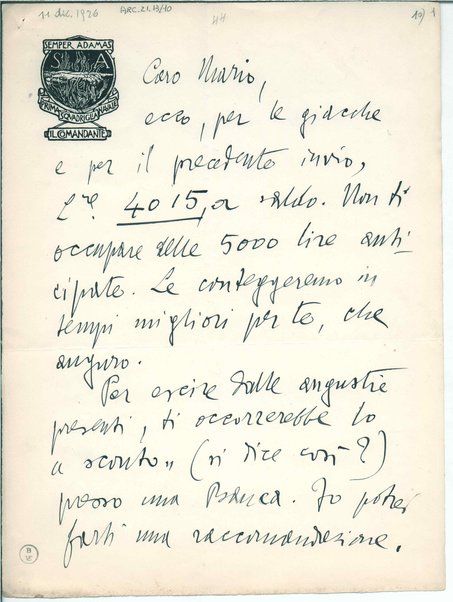 11 dic. 1926
ARC.21.13/10
44
10/1
SEMPER ADAMAS
S A
PRIMA SQUADRIGLIA NAVALE
IL COMANDANTE
Caro Mario,
ecco, per le giacche
e per il precedente invio,
L.re 4015, a saldo. Non ti
occupare delle 5000 lire anti-
cipate. Le conteggeremo in
tempi migliori per te, che
auguro.
Per escire dalle angustie
presenti, ti occorrerebbe lo
a sconto„ (si dice così?)
presso una Banca. Io potrei
farti una raccomandazione.